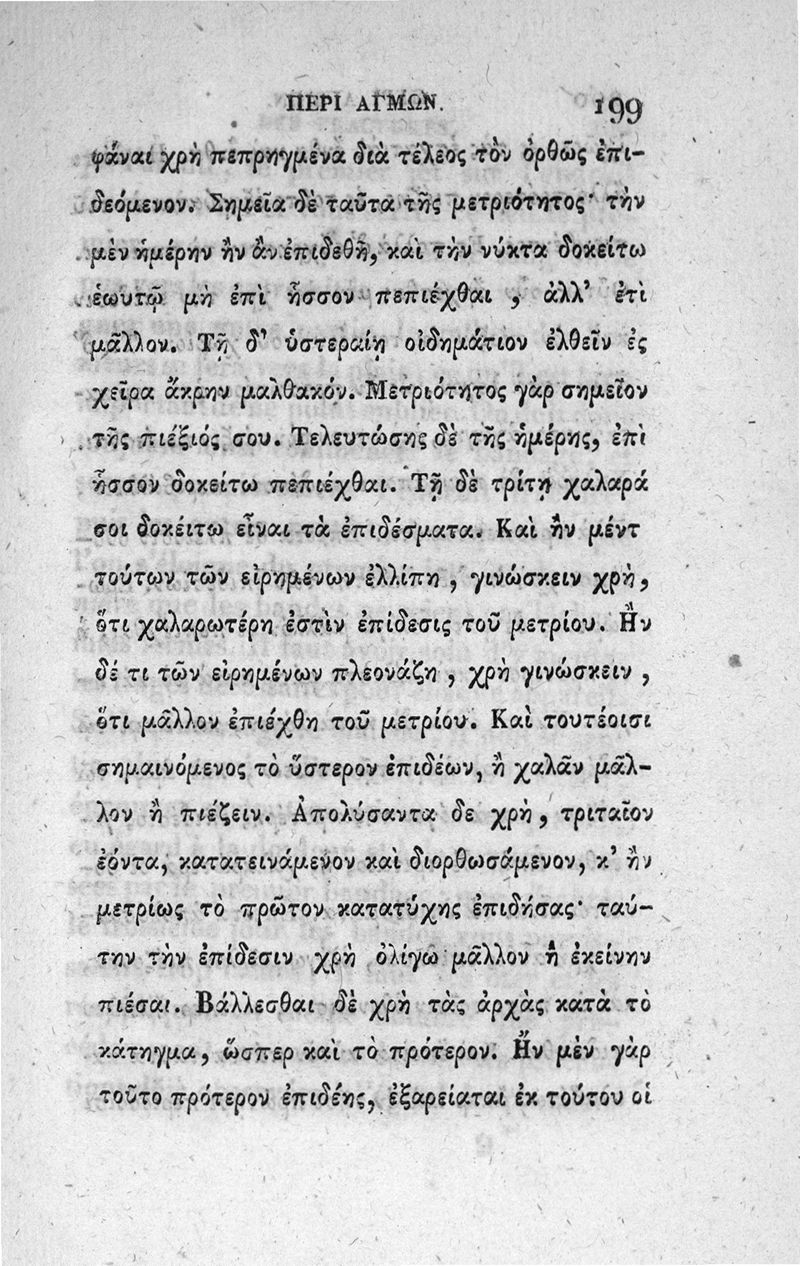 ΠΕΡΙ ΑΓΜΩΝ. 199
φάναι χρὴ πεπρηγμένα διὰ τέλεος τὸν ὀρθῶς ἐπι-
δεόμενον. Σημεῖα δὲ ταῦτα τῆς μετριότητος· τὴν
μὲν ἡμέρην ἣν ἂν ἐπιδεθῇ, καὶ τὴν νύκτα δοκείτω
ἑωυτῷ μὴ ἐπὶ ἧσσον πεπιέχθαι, ἀλλ’ ἐτὶ
μᾶλλον. Τῇ δ’ ὑστεραίῃ οἰδημάτιον ἐλθεῖν ἐς
χεῖρα ἄκρην μαλθακόν. Μετριότητος γὰρ σημεῖον
τῆς πιέξιός σου. Τελευτώσης δὲ τῆς ἡμέρης, ἐπὶ
ἧσσον δοκείτω πεπιέχθαι. Τῇ δὲ τρίτῃ χαλαρά
σοι δοκέιτω εἶναι τὰ ἐπιδέσματα. Καὶ ἢν μέντ
τούτων τῶν εἰρημένων ἐλλίπη, γινώσκειν χρὴ,
ὅτι χαλαρωτέρη ἐστὶν ἐπίδεσις τοῦ μετρίου. Ἢν
δέ τι τῶν εἰρημένων πλεονάζη, χρὴ γινώσκειν,
ὅτι μᾶλλον ἐπιέχθη τοῦ μετρίου. Καὶ τουτέοισι
σημαινόμενος τὸ ὕστερον ἐπιδέων, ἢ χαλᾶν μᾶλ-
λον ἢ πιέζειν. Ἀπολύσαντα δε χρὴ, τριταῖον
ἐόντα, κατατεινάμενον καὶ διορθωσάμενον, κ’ ἢν
μετρίως τὸ πρῶτον κατατύχης ἐπιδήσας· ταύ-
την τὴν ἐπίδεσιν χρὴ ὀλίγω μᾶλλον ἢ ἐκείνην
πιέσαι. Βάλλεσθαι δὲ χρὴ τὰς ἀρχὰς κατὰ τὸ
κάτηγμα, ὥσπερ καὶ τὸ πρότερον. Ἢν μὲν γὰρ
τοῦτο πρότερον ἐπιδέης, ἐξαρείαται ἐκ τούτου οἱ